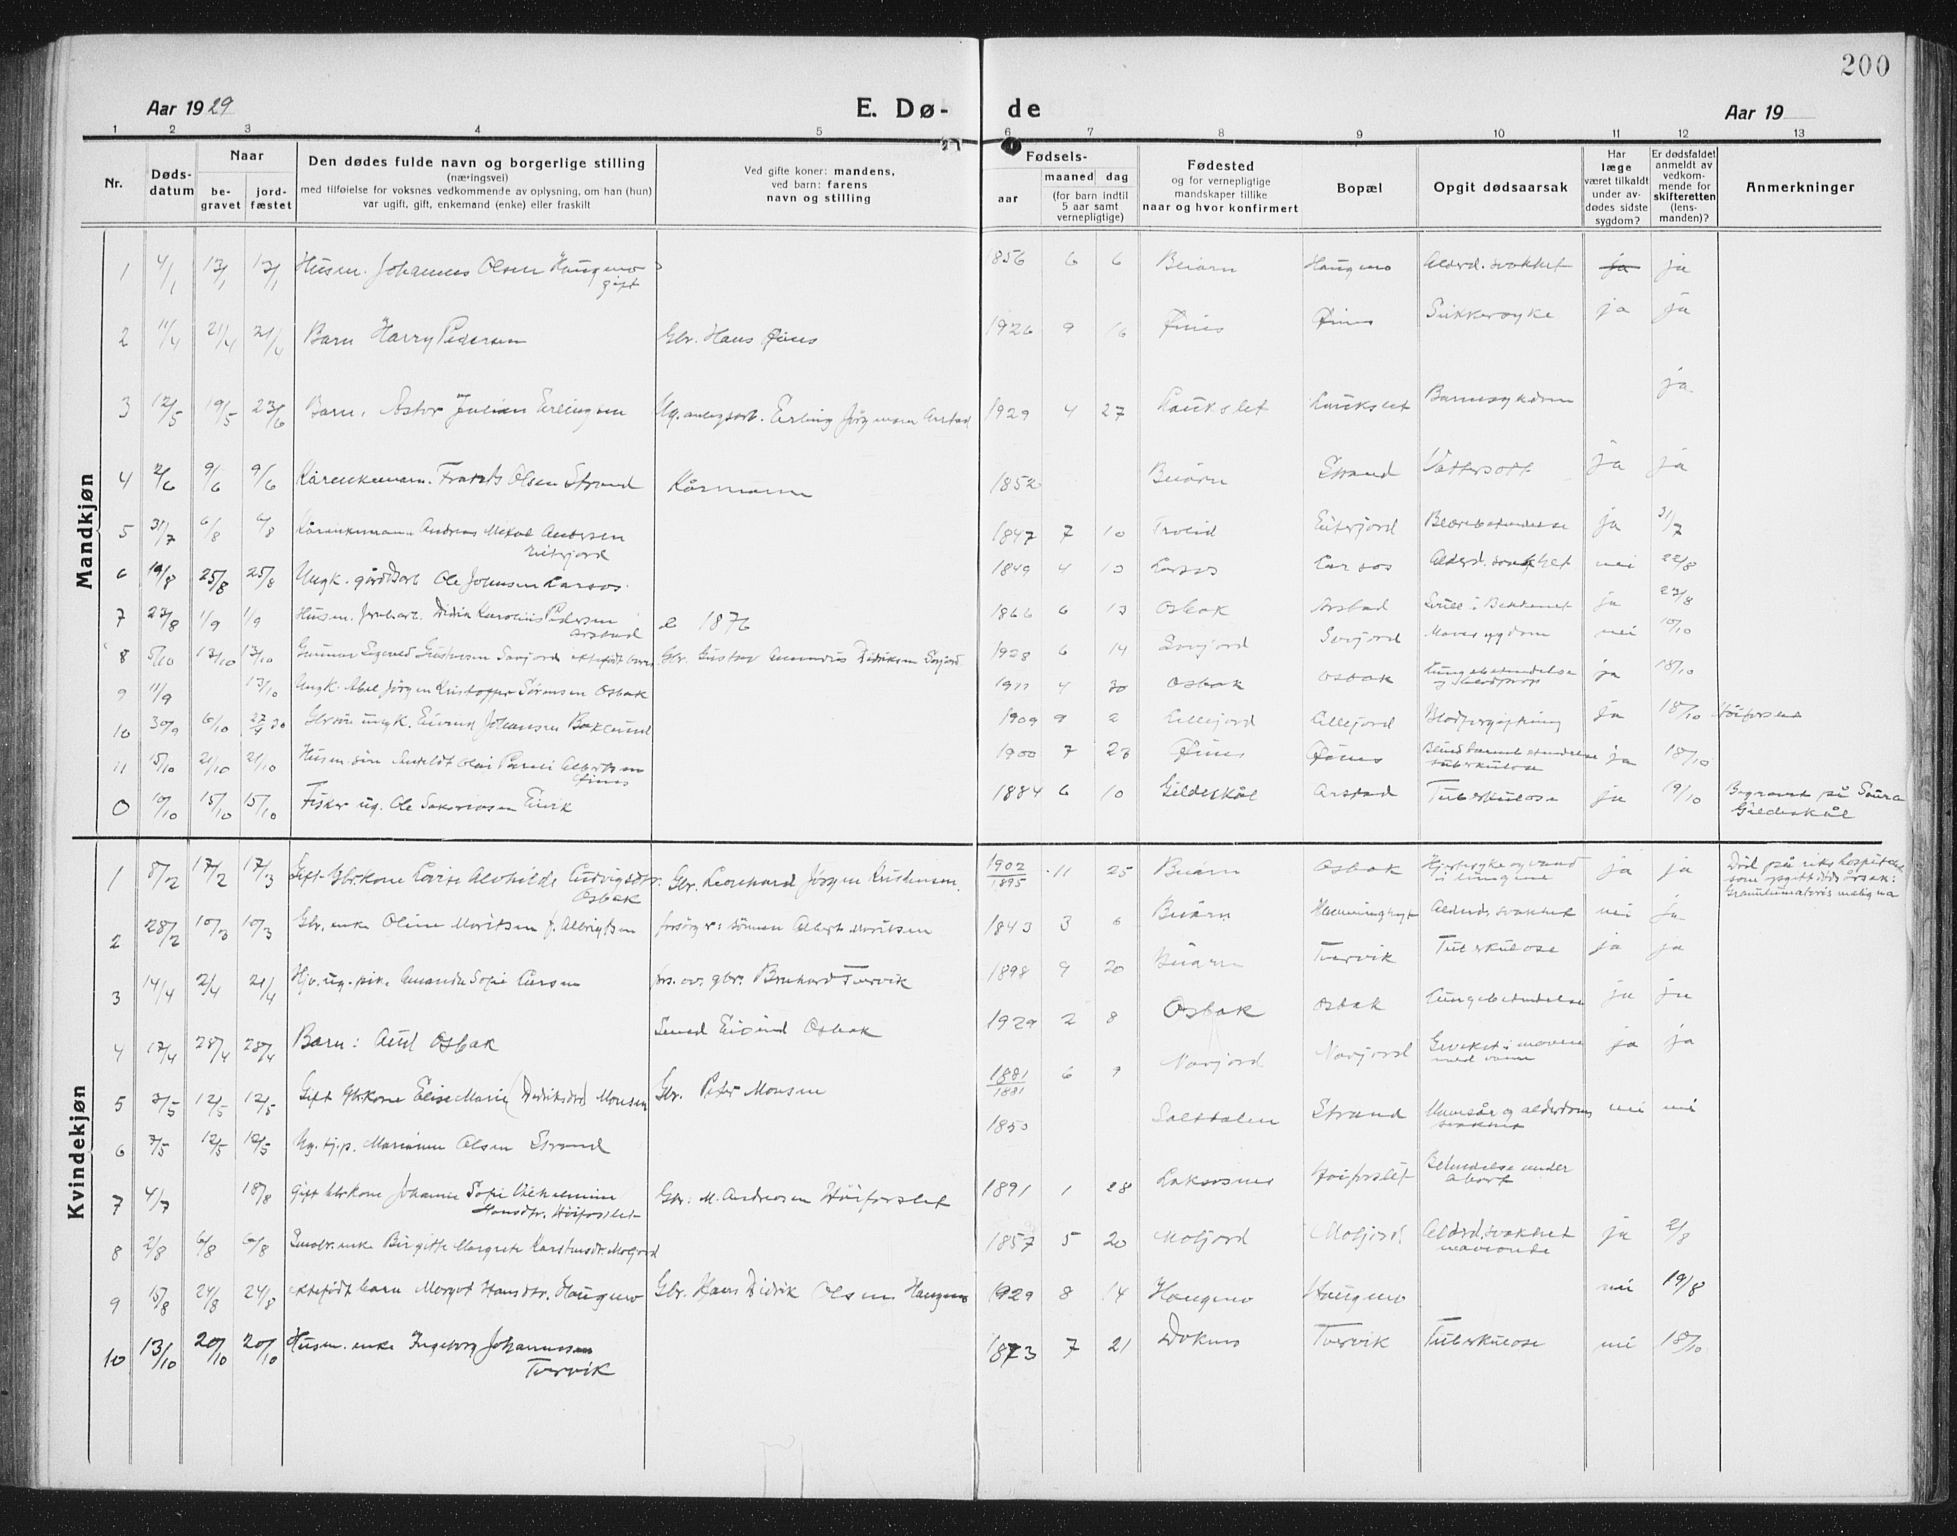 200
Aar 1929
E. Dø-
de
Aar 19
1 2 3 4 5 6 7 8 9 10 11 12 13
Nr.
Døds-
datum
Naar
be-
gravet
jord-
fæstet
Den dødes fulde navn og borgerlige stilling
(næringsvei)
med tilføielse for voksnes vedkommende av oplysning, om han (hun)
var ugift, gift, enkemand (enke) eller fraskilt
Ved gifte koner: mandens,
ved barn: farens
navn og stilling
Fødsels-
aar
maaned dag
(for barn indtil
5 aar samt
vernepligtige)
Fødested
og for vernepligtige
mandskaper tillike
naar og hvor konfirmert
Bopæl
Opgit dødsaarsak
Har
læge
været tilkaldt
under av-
dødes sidste
sygdom?
Er dødsfaldet
anmeldt av
vedkom-
mende for
skifteretten
(lens-
manden)?
Anmerkninger
Mandkjøn
1 4/1 13/1 13/1 Husm. Johannes Olsen Haugmo 1856 6 6 Beiarn Haugmo Alderd.svakhet ja ja
gift
2 11/4 21/4 21/4 Barn Harry Pedersen Gbr. Hans Øines 1926 9 16 Øines Øines Sukkersyke ja ja
3 12/5 19/5 23/6 Barn, Astor Julian Erlingsen Erling Jørgensen Arstad 1929 4 27 Laukslet Laukslet Barnesykdom ja
4 2/6 9/6 9/6 Kårenkemann. Frants Olsen Strand Kårmann 1852 Beiarn Strand Vattersott ja ja
5 31/7 6/8 6/8 Kårenkemann Andreas Andersen 1847 7 10 Trolid Eiterjord Blærebetendelse ja 31/7
Eiterjord
6 19/8 25/8 25/8 Ungk. gårdsarb Ole Johnsen Larsos. 1849 4 13 Larsos Larsos Alderd.svakhet nei 22/8
7 23/8 1/9 1/9 Husm. Didrik Karolius Pedersen e 1876 1866 6 13 Osbak Arstad ja 23/8
Arstad
8 5/10 13/10 13/10 Gunnar Sigurd Gustavsen Savjord ektefødt barn Gbr. Gustav Amandus Didriksen Savjord 1928 6 14 Savjord Savjord Mavesygdom nei 10/10
9 11/9 13/10 Ungk. Abel Jørgen Kristoffer Sørensen Osbak 1911 4 30 Osbak Osbak Lungebetendelse ja 18/10
10 30/9 6/10 27/4 30 Gbrsøn ungk. Eivind Johansen Bakelund 1909 9 2 Lillejord Lillejord Blodforgiftning ja 18/10
11 15/10 21/10 21/10 Husm. søn Albertsen 1900 7 23 Øines Øines ja 18/10
Øines tuberkulose
0 10/10 15/10 15/10 Fisker ug. Ole Sakariassen Eivik 1884 6 10 Gildeskål Arstad Tuberkulose ja 19/10 Begravet på Saura
Gildeskål
Kvindekjøn
1 8/2 17/2 17/3 Gift Gbrkone Lovise Alvhilde Ludvigsdtr. Gbr. Leonhard Jørgen Kristensen. 1902/1895 11 25 Beiarn Osbak Hjertesyke og vand ja ja Død på rikshospitalet
Osbak i lungene som opgitt dødsårsak:
2 28/2 10/3 10/3 Gbr. enke Oline Moritsen f. Albrigtsen forsørger: sønnen Albert Moritsen 1843 3 6 Beiarn Alderds.svakhet nei ja
3 14/4 21/4 21/4 Hjv. ug. pike Amanda Sofie Larsen gbr. Bernhard Tvervik 1898 9 20 Beiarn Tvervik Tuberkulose ja ja
4 17/4 28/4 28/4 Barn: Aud Osbak Smed Eivind Osbak 1929 2 8 Osbak Osbak Lungebetendelse ja ja
5 3/5 12/5 12/5 Gift Gbrkone Elise Marie (Didriksdtr) Monsen Gbr. Peter Monsen 1881/1881 6 9 Navjord Navjord ja ja
6 7/5 12/5 12/5 Ug. tj.p. Marianne Olsen Strand 1853 Saltdalen Strand Mavesår og alderdoms nei nei
svakhet
7 4/7 18/8 Gift Gbrkone Johanne Sofie Vilhelmine Gbr: M. Andreasen Høiforslet 1891 1 28 Laksosnes Høiforslet Betendelse under
Hansdtr. Høiforslet abort
8 2/8 6/8 6/8 enke Birgitte Margrete Karstensdtr. Moljord 1857 5 20 Moljord Moljord Alderd.svakhet ja 2/8
9 15/8 24/8 24/8 ektefødt barn Margot Hansdtr. Haugmo Gbr. Hans Didrik Olsen Haugmo 1929 8 14 Haugmo Haugmo nei 19/8
10 13/10 20/10 20/10 Husm. enke Ingeborg Johannessen 1873 7 21 Doknes Tvervik Tuberkulose nei 18/10
Tvervik